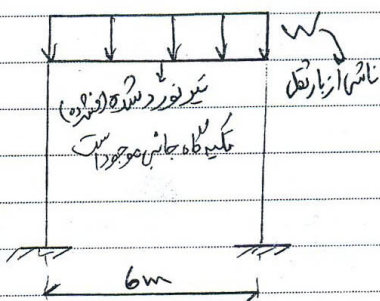 W
ناشی از بار ثقلی
تیر نورد شده (فشرده)
تکیه گاه جانبی موجود است
6m